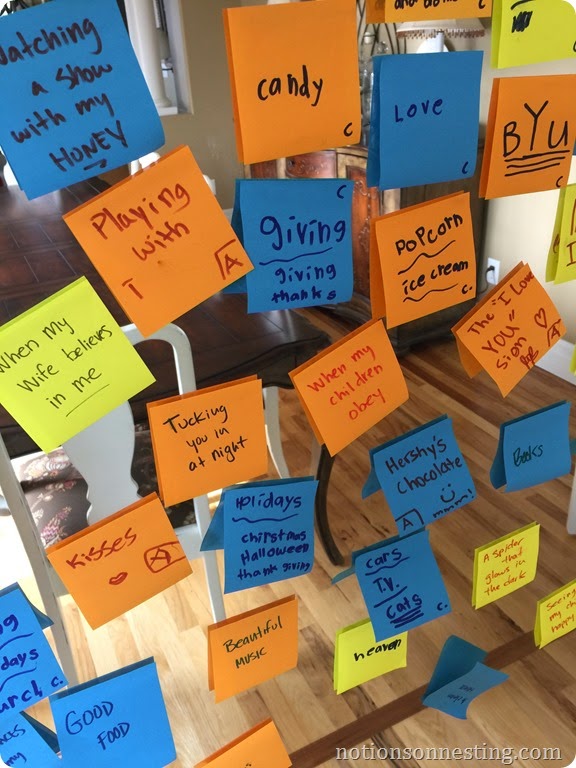 Watching
a show
with my
HONEY
candy
C
LOVE
C
BYU
C
C
Playing
with
T
A
C
giving
giving
thanks
POPCORN
ice cream
C.
The "I Love
YOU"
sign
A
When my
Wife believes
in me
Tucking
you in
at night
When my
children
obey
Hershy's
Chocolate
A
mmm!
Books
Kisses
A
Holidays
christmas
Halloween
thank giving
cars
T.V.
cats
C.
A spider
that
glows in
the dark
seeing
my
happy
days
C.
Beautiful
MUSIC
heaven
GOOD
FOOD
my
notionsonnesting.com